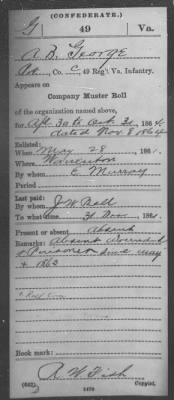 (CONFEDERATE.)
G 49 Va.
A. B. George
Co. C, 49 Reg't Va. Infantry.
Appears on
Company Muster Roll
of the organization named above,
for Apl 30 to Oct 31, 1864
dated Nov 8 1864
Enlisted:
When May 28, 1861.
Where Warrenton
By whom E Murray
Period
Last paid:
By whom J W Ball
To what time 31 , 186
Present or absent Absent
Remarks: Absent
Prisoner since May
1863
Book mark:
R W Fish
(642) Copyist.